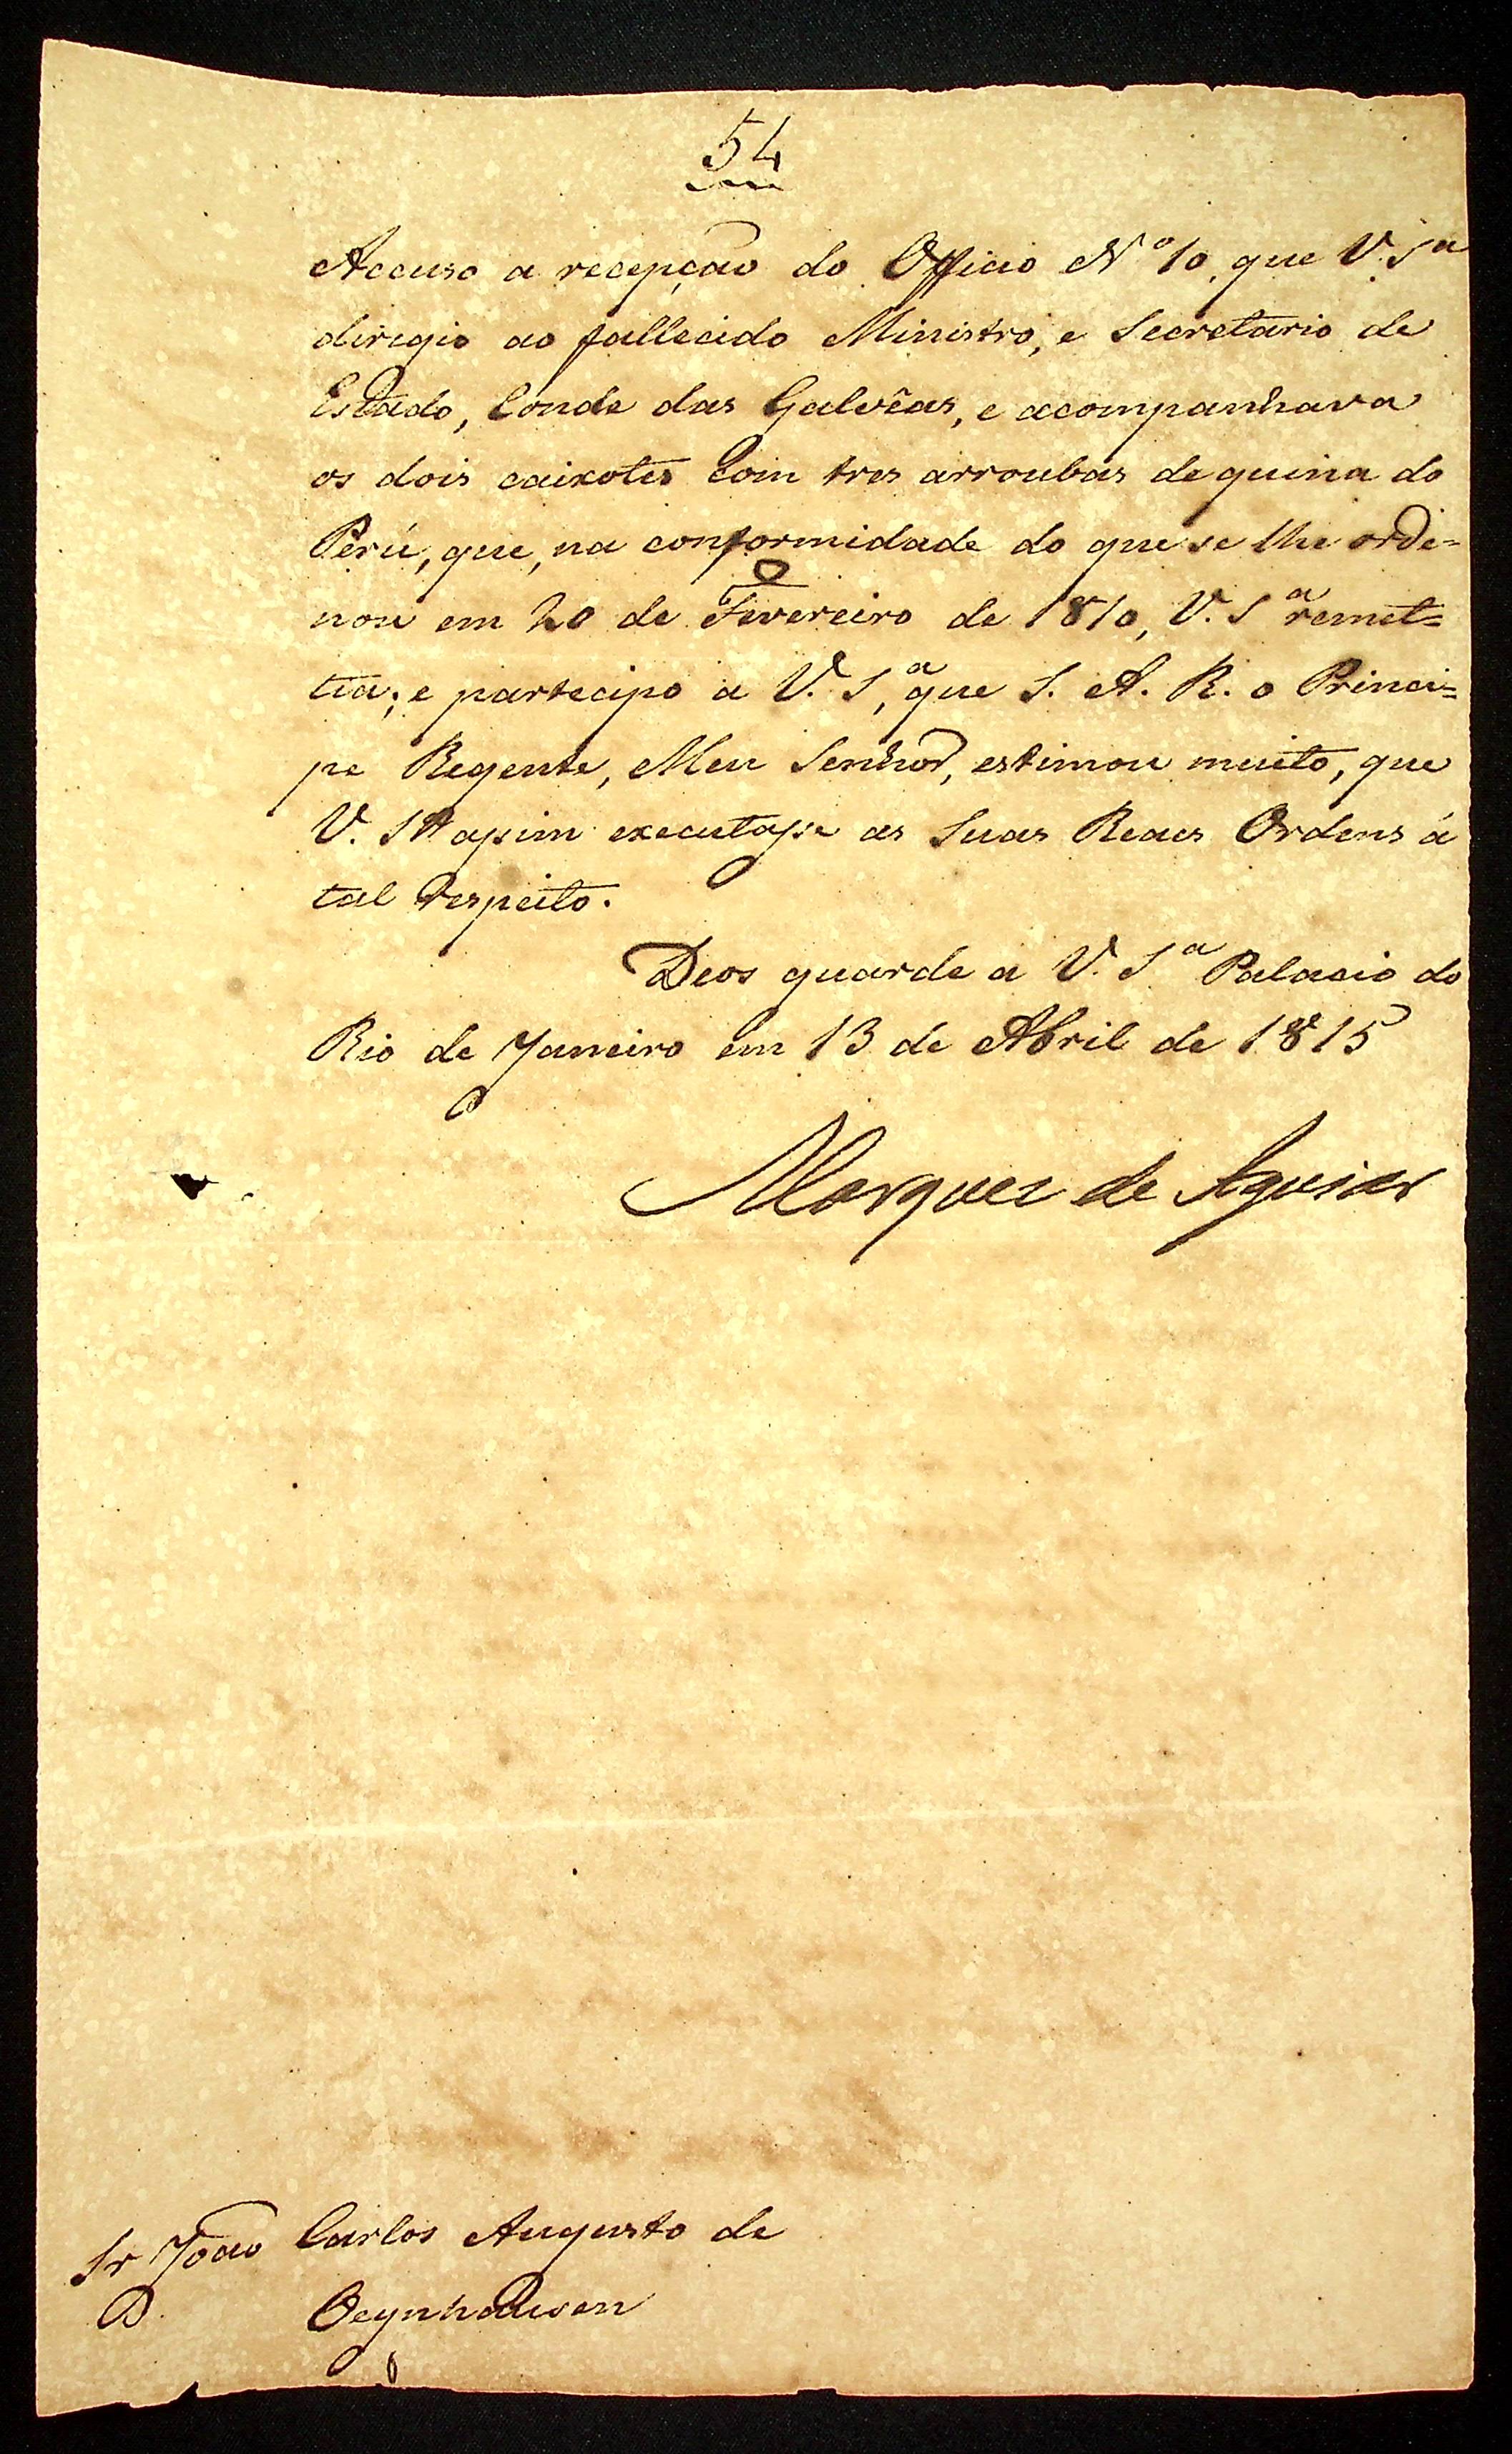 54
Accuso a recepção do Officio Nº 10, que V. Sª
dirigio ao fallecido Ministro, e Secretario de
Estado, Conde das Galvêas, e acompanhava
os dois caixotes Com tres arroubas de quina do
Perú, que, na conformidade do que se lhe orde=
nou em 20 de Fevereiro de 1810, V. Sª remet=
tia; e partecipo a V. Sª, que S. A. R. o Princi=
pe Regente, Meu Senhor, estimou muito, que
V. Sª assim executasse as Suas Reaes Ordens á
tal respeito.
Deos guarde a V. Sª Palacio do
Rio de Janeiro em 13 de Abril de 1815
Marquez de Aguiar
Sr João Carlos Augusto de
Oeynhausen